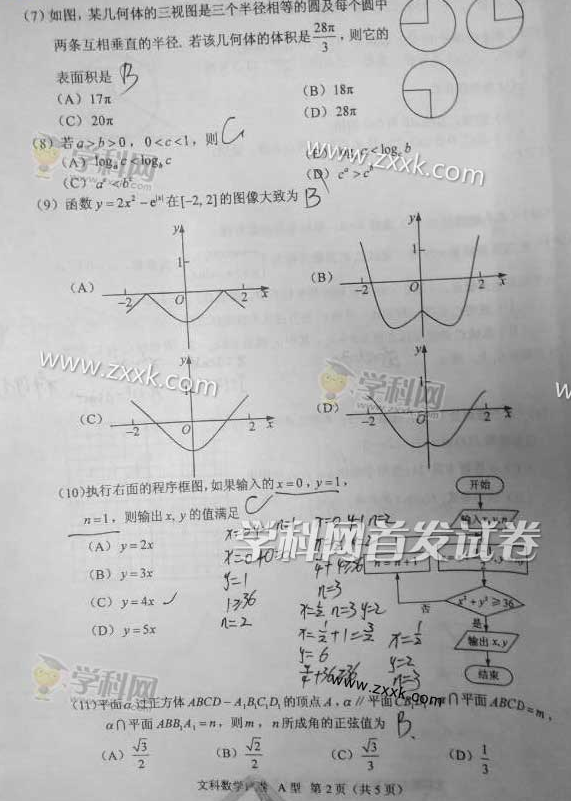 (7) 如图，某几何体的三视图是三个半径相等的圆及每个圆中
两条互相垂直的半径. 若该几何体的体积是 28π/3，则它的
表面积是 B
(A) 17π (B) 18π
(C) 20π (D) 28π
(8) 若 a>b>0，0<c<1，则 C
(A) logₐc<log_b c (B) <log_c b
(C) aᶜ<bᶜ (D) cᵃ>cᵇ
学科网
www.zxxk.com
(9) 函数 y=2x²−e^|x| 在[−2, 2]的图像大致为 B
(A) y 1 −2 O 2 x
(B) y 1 −2 O 2 x
www.zxxk.com
学科网
(C) y 1 −2 O 2 x
(D) y 1 −2 O 2 x
(10) 执行右面的程序框图，如果输入的 x=0，y=1，
n=1，则输出 x, y 的值满足 C
(A) y=2x
(B) y=3x
(C) y=4x
(D) y=5x
开始
输入
n=n+1
x²+y²≥36
否
是
输出 x, y
结束
学科网首发试卷
y=1
1≥36
n=2
n=3
x=1/2 n=3 y=2
x=1/2+1=3/2
y=6
x=1/2
y=2
n=3
学科网
www.zxxk.com
(11) 平面α过正方体 ABCD−A₁B₁C₁D₁ 的顶点 A，α // 平面 CB₁D₁，α∩平面 ABCD=m，
α∩平面 ABB₁A₁=n，则 m，n 所成角的正弦值为 B
(A) √3/2 (B) √2/2 (C) √3/3 (D) 1/3
文科数学试卷 A型 第2页（共5页）